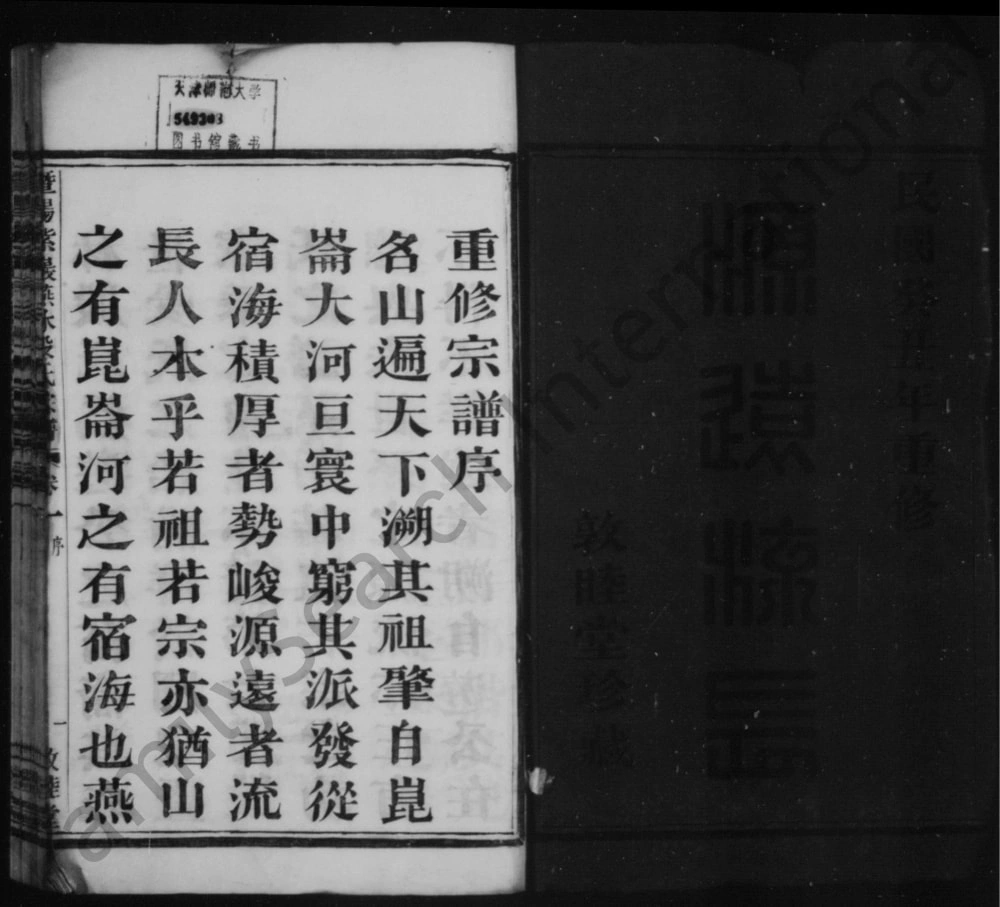 民國
重修
敦睦堂珍藏
天津師範大学
549203
图书馆藏书
重修宗譜序
名山遍天下溯其祖肇自崑
崙大河亘寰中窮其派發從
宿海積厚者勢峻源遠者流
長人本乎若祖若宗亦猶山
之有崑崙河之有宿海也燕
序
一
FamilySearch International